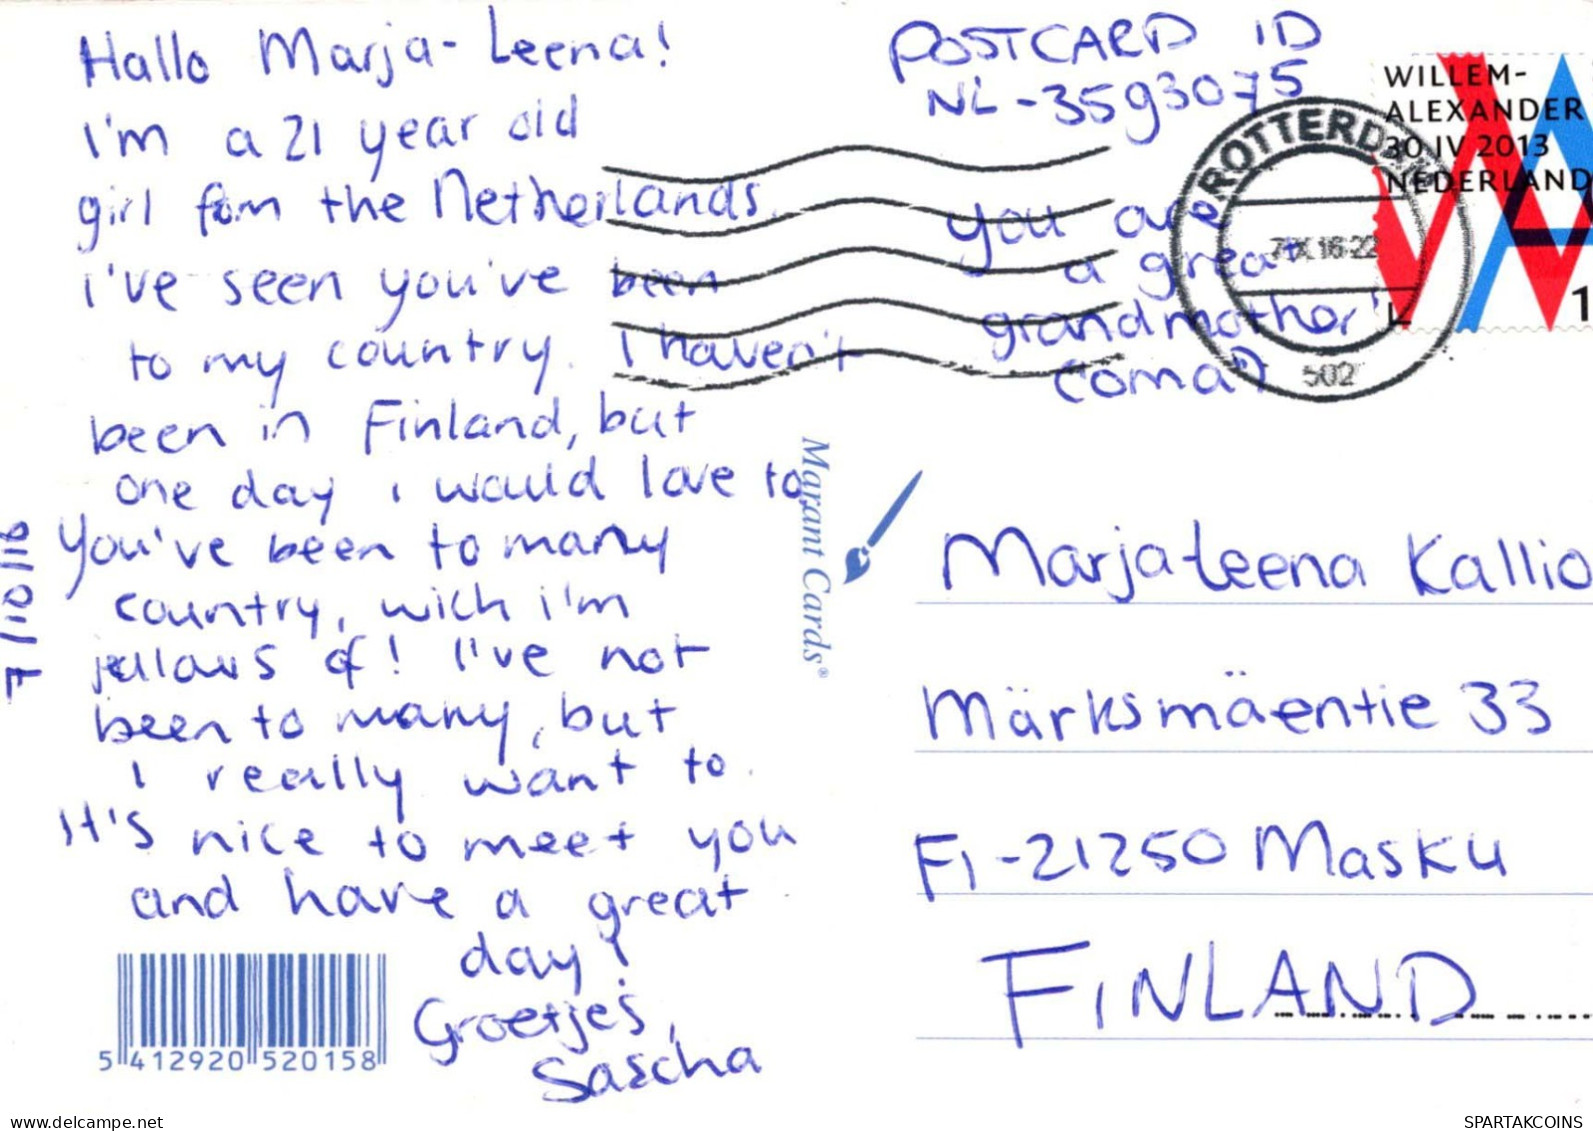 Hallo Marja-Leena!
I'm a 21 year old
girl from the Netherlands.
I've seen you've been
to my country. I haven't
been in Finland, but
one day i would love to.
You've been to many
country, wich i'm
jellous of! I've not
been to many, but
I really want to.
It's nice to meet you
and have a great
day!
Groetjes,
Sascha
7/10/16
5 412920 520158
Marant Cards®
POSTCARD ID
NL-3593075
You are
a great
grandmother!
(oma?)
WILLEM-
ALEXANDER
30 IV 2013
NEDERLAND
1
ROTTERDAM
16-22
502
Marja-Leena Kallio
Märksmäentie 33
FI-21250 Masku
FINLAND
www.delcampe.net
SPARTAKCOINS